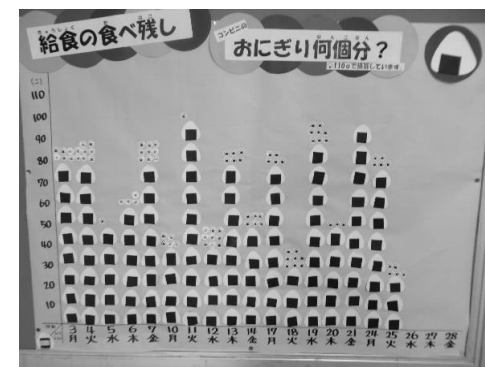 給食の食べ残し
コンビニの
おにぎり何個分?
110gで換算しています
(こ)
110
100
90
80
70
60
50
40
30
20
10
3 4 5 6 7 10 11 12 13 14 17 18 19 20 21 24 25 26 27 28
月 火 水 木 金 月 火 水 木 金 月 火 水 木 金 月 火 水 木 金